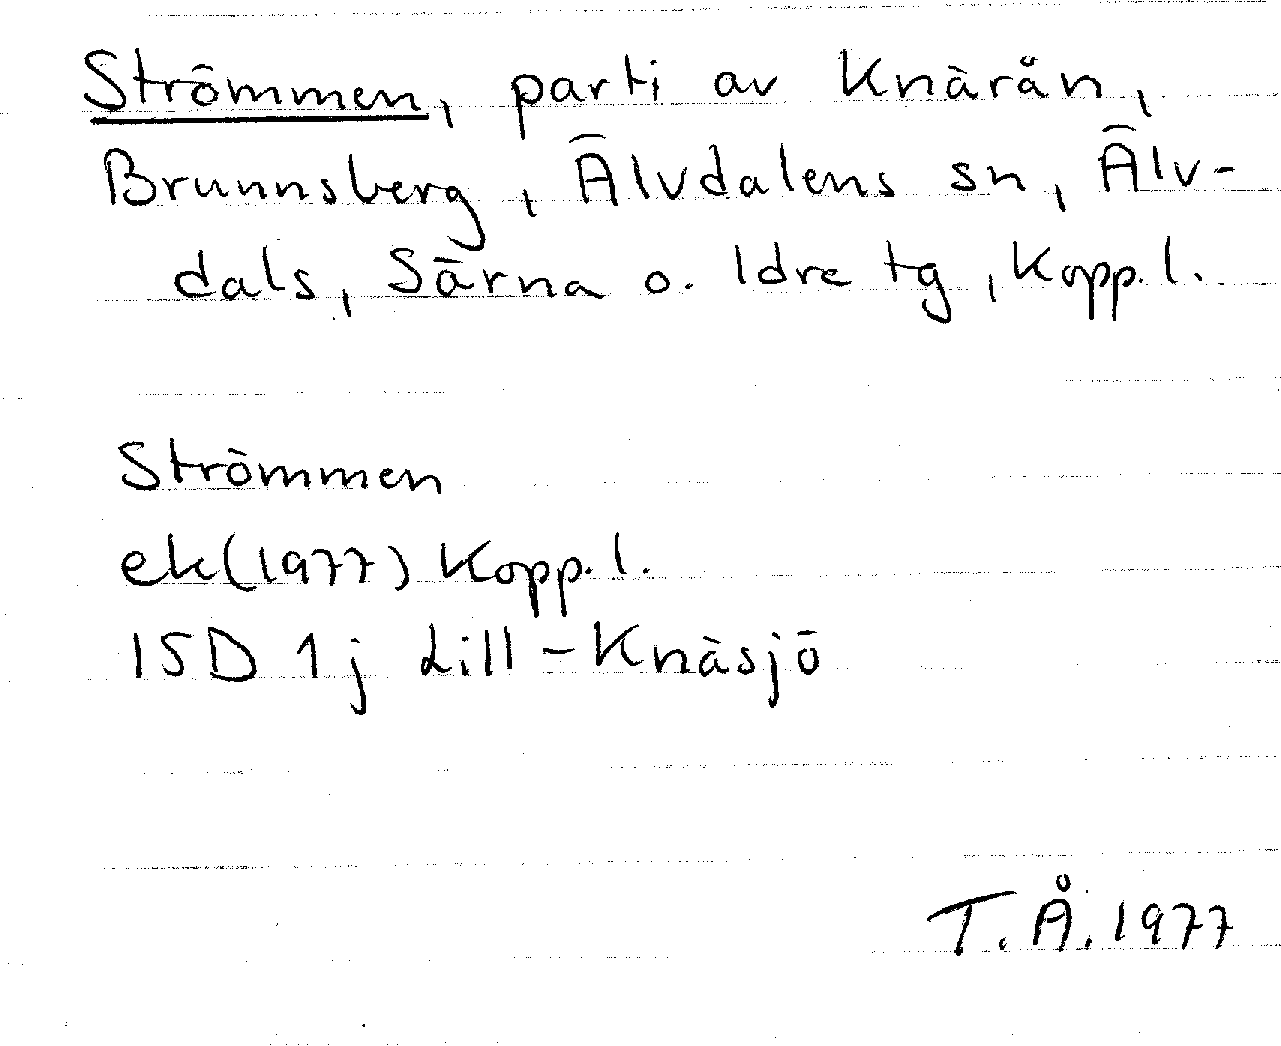 Strömmen, parti av Knärån,
Brunnsberg, Älvdalens sn, Älv-
dals, Särna o. Idre tg, Kopp.l.
Strömmen
ek(1977) Kopp.l.
15D 1j Lill-Knäsjö
T.Å.1977